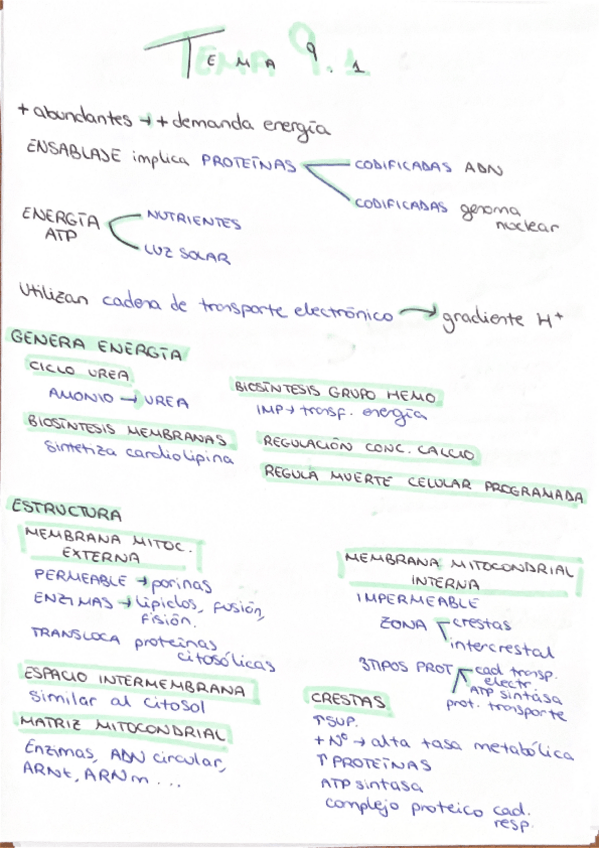 TEMA 9.1
+ abundantes → + demanda energía
ENSABLASE implica PROTEÍNAS
CODIFICADAS ADN
CODIFICADAS genoma
nuclear
ENERGÍA
ATP
NUTRIENTES
LUZ SOLAR
Utilizan cadena de transporte electrónico → gradiente H+
GENERA ENERGÍA
CICLO UREA
AMONIO → UREA
BIOSÍNTESIS MEMBRANAS
Sintetiza cardiolipina
BIOSÍNTESIS GRUPO HEMO
IMP → transf. energía
REGULACIÓN CONC. CALCIO
REGULA MUERTE CELULAR PROGRAMADA
ESTRUCTURA
MEMBRANA MITOC.
EXTERNA
PERMEABLE → porinas
ENZIMAS → lípidos, fusión,
fisión.
TRANSLOCA proteínas
citosólicas
ESPACIO INTERMEMBRANA
Similar al citosol
MATRIZ MITOCONDRIAL
Enzimas, ADN circular,
ARNt, ARNm...
MEMBRANA MITOCONDRIAL
INTERNA
IMPERMEABLE
ZONA
crestas
intercrestal
3TIPOS PROT
cad transp.
electr
ATP sintasa
prot. transporte
CRESTAS
↑SUP.
+ Nº → alta tasa metabólica
↑ PROTEÍNAS
ATP sintasa
complejo proteico cad.
resp.